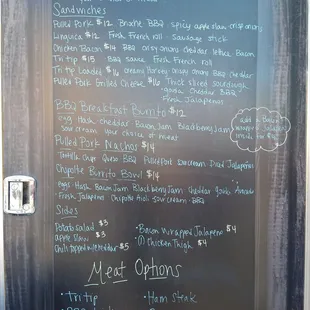 Sandwiches
Pulled Pork $12 Brioche BBQ spicy apple slaw crisp onions
Linguica $12 Fresh French roll Sausage stick
Chicken Bacon $14 BBQ crispy onions cheddar lettuce Bacon
Tri tip $15 BBQ sauce French roll
Tri tip Loaded $16 creamy crispy onions BBQ cheddar
Pulled Pork Grilled Cheese $16 Thick sliced sourdough
Cheddar BBQ
Fresh Jalapenos
BBQ Breakfast Burrito $12
egg Hash cheddar Bacon Jam Blackberry Jam
sour cream your choice of meat
add a Bacon
wrapped Jalapeno
inside for $4
Pulled Pork Nachos $14
Tortilla chips Queso BBQ Pulled Pork sour cream Diced Jalapeños
Chipotle Burrito Bowl $14
eggs Hash Bacon Jam Blackberry Jam cheddar Avocado
Fresh Jalapenos Chipotle Aioli sour cream BBQ
Sides
Potato salad $3
Apple Slaw $3
Chili topped w/ cheddar $5
• Bacon Wrapped Jalapeno $4
• (1) Chicken Thigh $4
Meat Options
• Tri tip
• Ham Steak